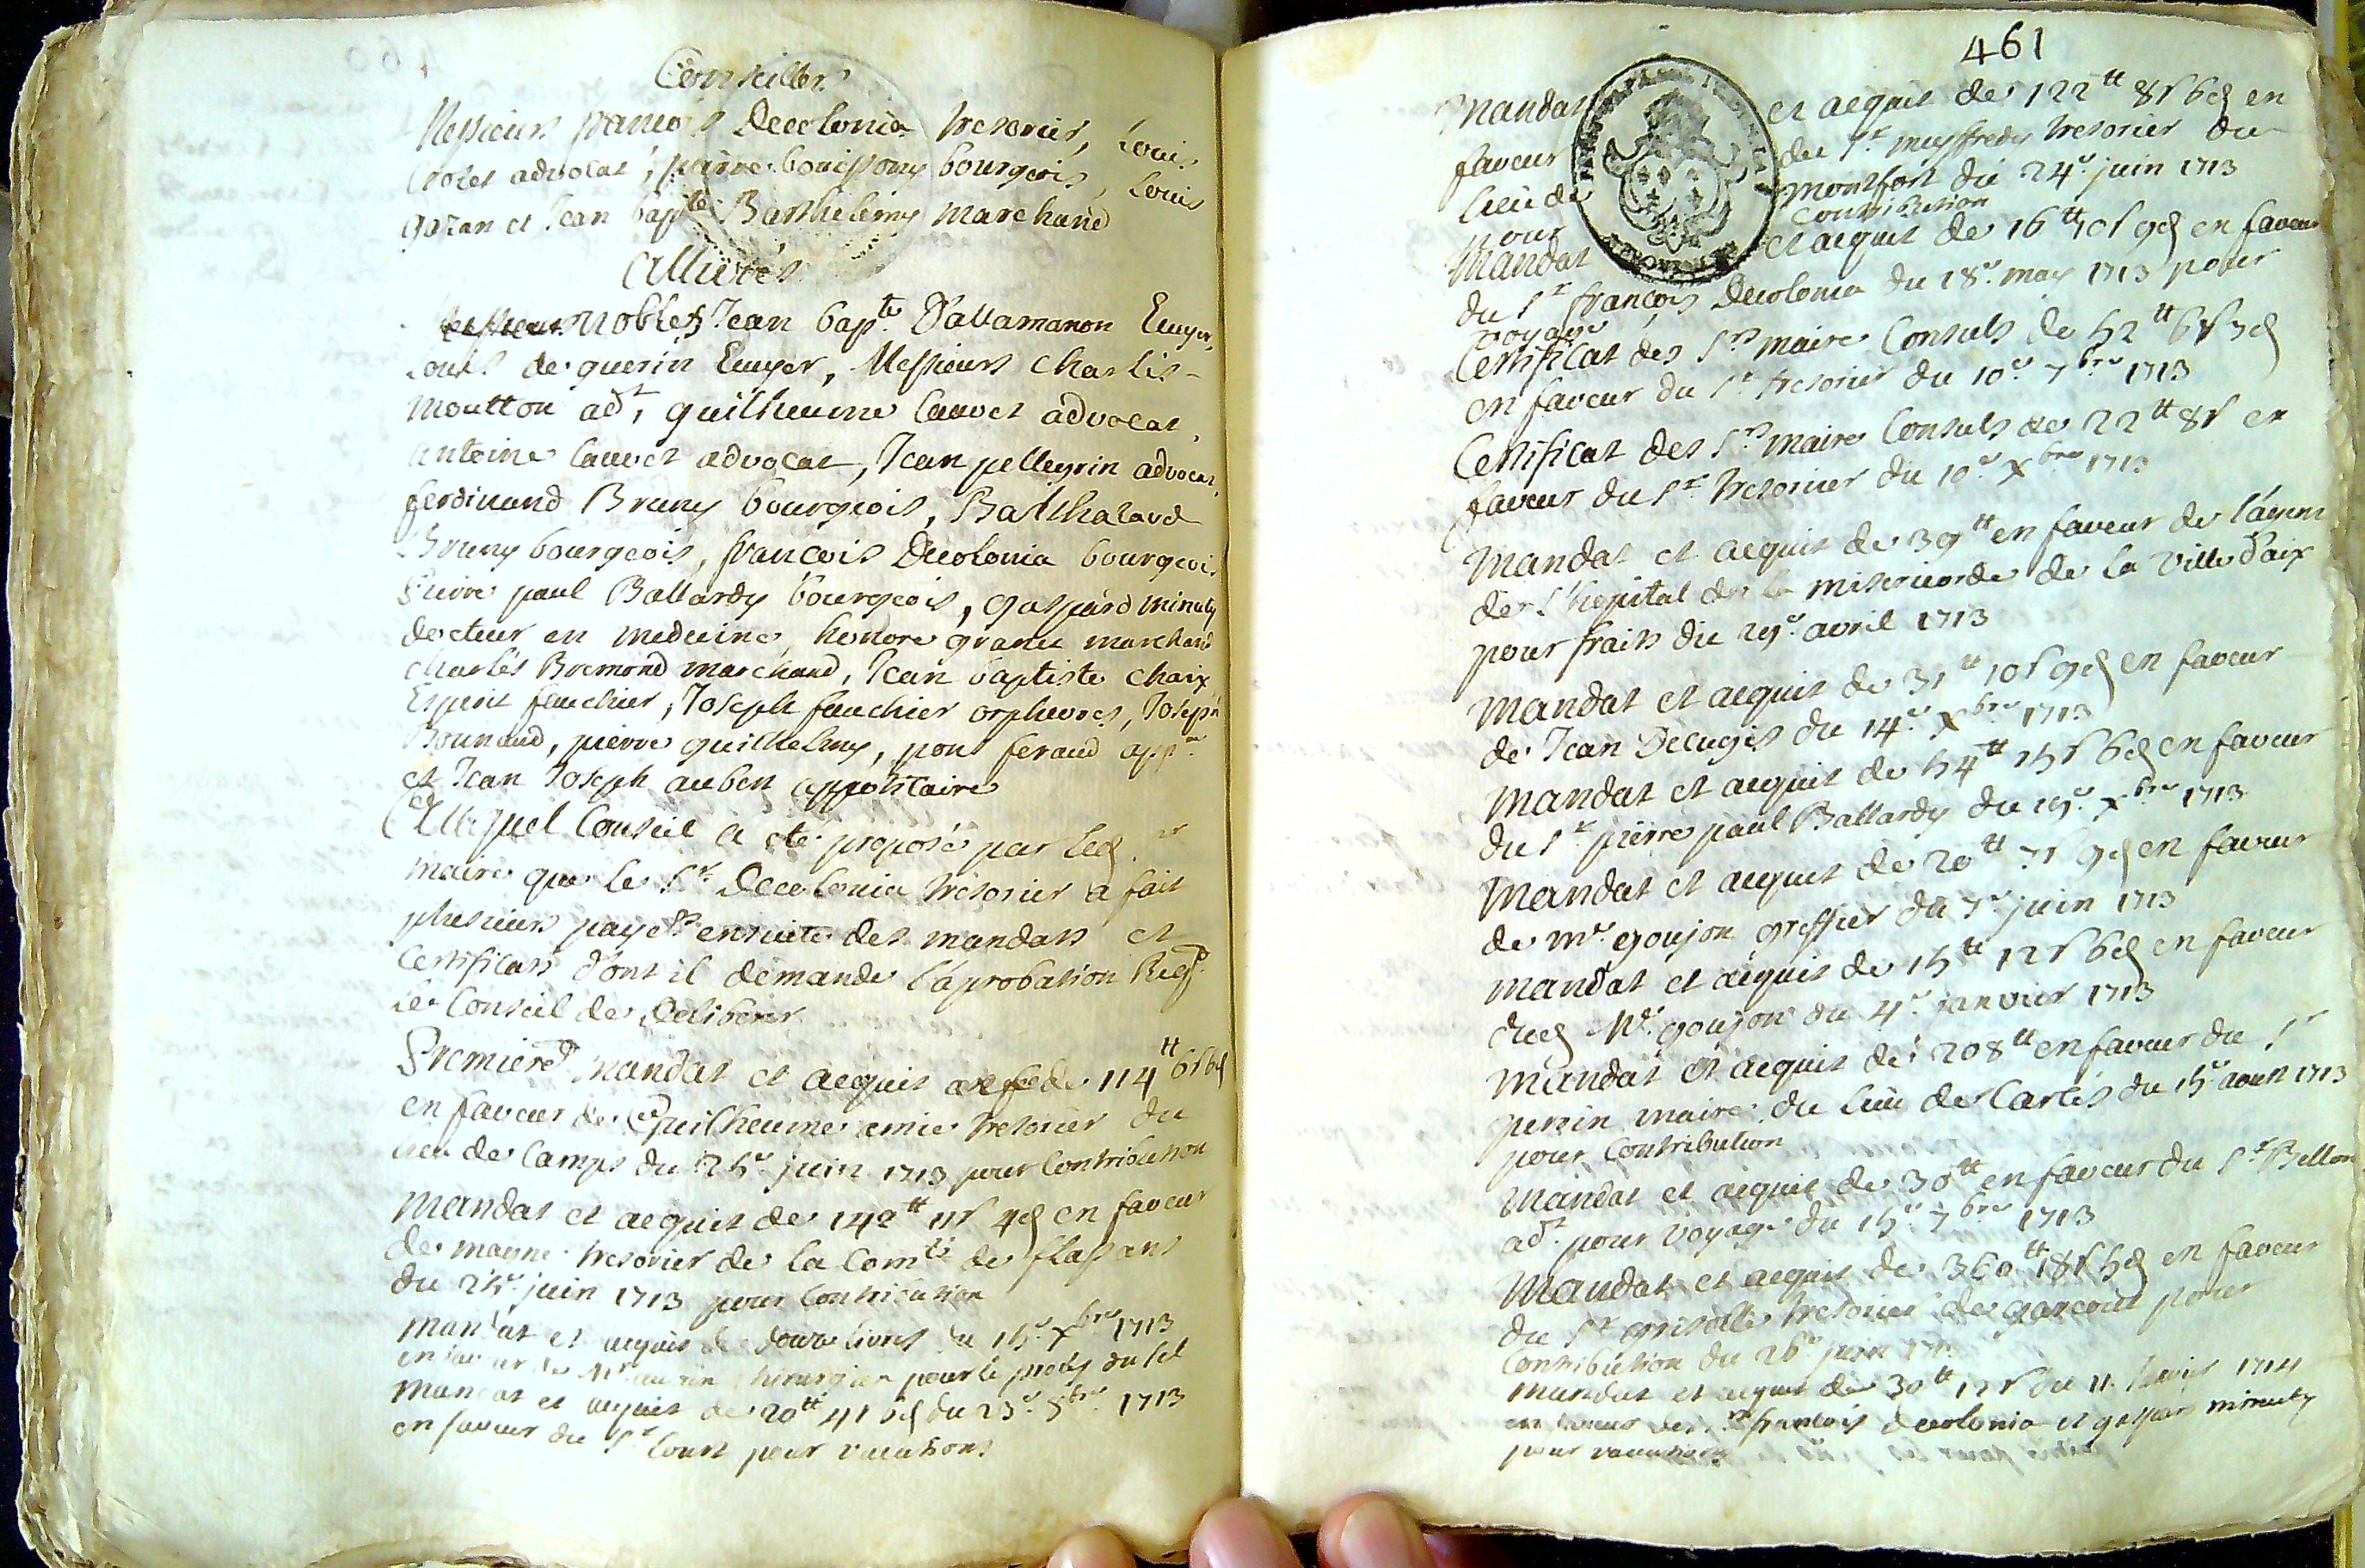 Conseillers
Messieurs francois Decolonia tresorier, Louis
Crozet advocat, pierre bouissony bourgeois, Louis
gazan et Jean bapte Barthelemy marchand
Allivrés
Nobles Jean bapte D'allamanon Ecuyer,
Louis de guerin Ecuyer, Messieurs charles
moutton adt, guilheume Cauvet advocat,
antoine Cauvet advocat, Jean pellegrin advocat,
ferdinand Bruny bourgeois, Balthazard
Bruny bourgeois, francois Decolonia bourgeois
Pierre paul Ballardy bourgeois, gaspard minuty
docteur en medecine, honore granet marchand
charles Bremond marchand, Jean baptiste chaix,
Esprit fauchier, Joseph fauchier orphevres, Joseph
Bounaud, pierre guilhelmy, pons feraud appre
et Jean Joseph aubert appotitaire
Auquel Conseil a ete proposé par led. sr
maire que le Sr. Decolonia tresorier a fait
plusieurs payets ensuite des mandats et
Certificats d'ont il demande l'aprobation Reqt.
le Conseil de Deliberer
Premiered mandat et acquit de 114tt 6s 6d
en faveur de guilheume emic tresorier du
lieu de Camps du 25e juin 1713 pour Contribution
mandat et acquit de 142tt 11s 4d en faveur
de mayne tresorier de la Comté de flassans
du 25e juin 1713 pour Contribution
mandat et acquit de douze livres du 15e xbre 1713
en faveur de Mr chirurgien pour le procés du sel
mandat et acquit de 20tt 4s 6d du 23e 8bre 1713
en faveur du Sr Court pour vacations
461
mandat et acquit de 122tt 8s 6d en
faveur du Sr. meyffredy tresorier du
lieu de montfort du 24e juin 1713
pour Contribution
mandat et acquit de 16tt 10s 9d en faveur
du Sr francois Decolonia du 18e may 1713 pour
voyage
Certificat des Srs maire Consuls de 52tt 6s 3d
en faveur du Sr tresorier du 10e 7bre 1713
Certificat des Srs maire Consuls de 22tt 8s en
faveur du Sr tresorier du 10e xbre 1713
mandat et acquit de 39tt en faveur de l'agent
de l'hopital de la misericorde de la ville d'aix
pour frais du 29e avril 1713
mandat et acquit de 31tt 10s 9d en faveur
de Jean Decugis du 14e xbre 1713
mandat et acquit de 54tt 15s 6d en faveur
du Sr pierre paul Ballardy du 19e xbre 1713
mandat et acquit de 20tt 7s 9d en faveur
de me goujon greffier du 7e juin 1713
mandat et acquit de 15tt 12s 6d en faveur
dud Me goujon du 4e janvier 1713
mandat et acquit de 208tt en faveur du Sr
perrin maire du lieu de Carcés du 15e aoust 1713
pour Contribution
mandat et acquit de 30tt en faveur du Sr Bellon
adt. pour voyage du 15e 7bre 1713
Mandat et acquit de 360tt 18s 5d en faveur
du Sr grisolle tresorier de garcout pour
Contribution du 26e juin
mandat et acquit de 30tt 12s du 11 1714
en faveur des Srs francois decolonia et gaspar minuty
pour vacations